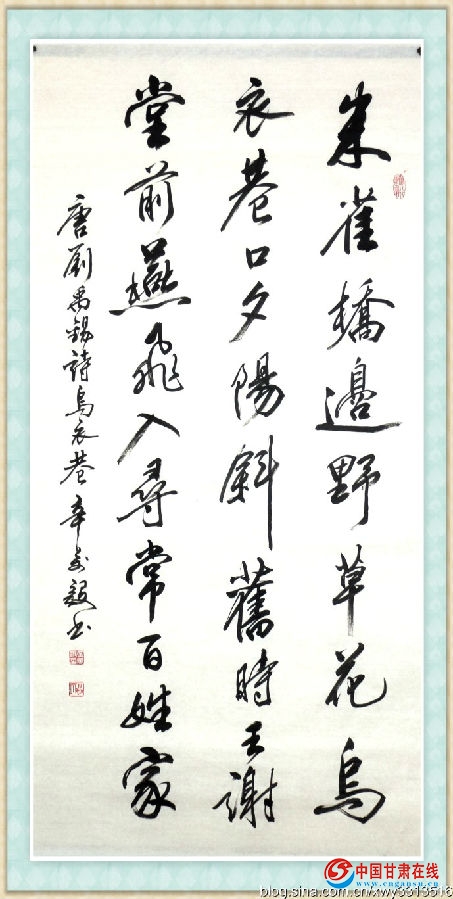 朱雀橋邊野草花烏
衣巷口夕陽斜舊時王謝
堂前燕飛入尋常百姓家
唐劉禹錫詩烏衣巷 辛 书
中国甘肃在线
www.cngansu.cn
blog.sina.com.cn/xwy3313516